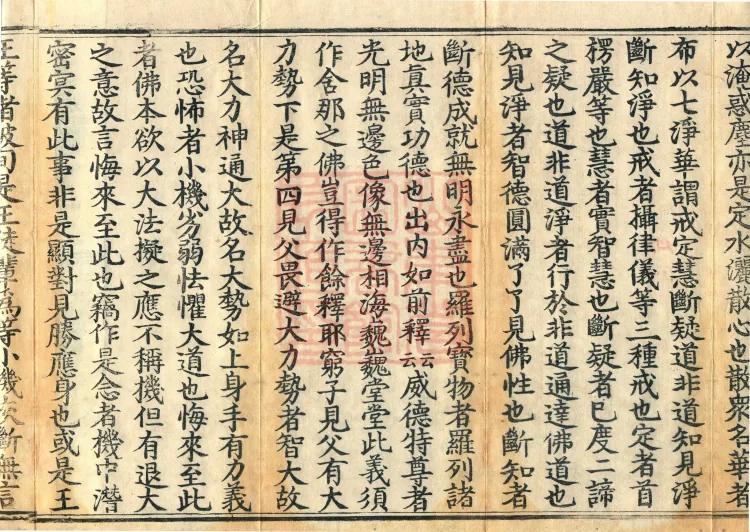 以淹惑塵亦是定水灑散心也散衆名華者
布以七淨華謂戒定慧斷疑道非道知見淨
斷知淨也戒者攝律儀等三種戒也定者首
楞嚴等也慧者實智慧也斷疑者已度二諦
之疑也道非道淨者行於非道通達佛道也
知見淨者智德圓滿了了見佛性也斷知者
斷德成就無明永盡也羅列寶物者羅列諸
地真實功德也出内如前釋云云威德特尊者
光明無邊色像無邊相海巍巍堂堂此義須
作舍那之佛豈得作餘釋耶窮子見父有大
力勢下是第四見父畏避大力勢者智大故
名大力神通大故名大勢如上身手有力義
也恐怖者小機劣弱怯懼大道也悔來至此
者佛本欲以大法擬之應不稱機但有退大
之意故言悔來至此也竊作是念者機中潛
密冥有此事非是顯對見勝應身也或是王
王等者波旬是王徒輩爲等小機欠斷無言